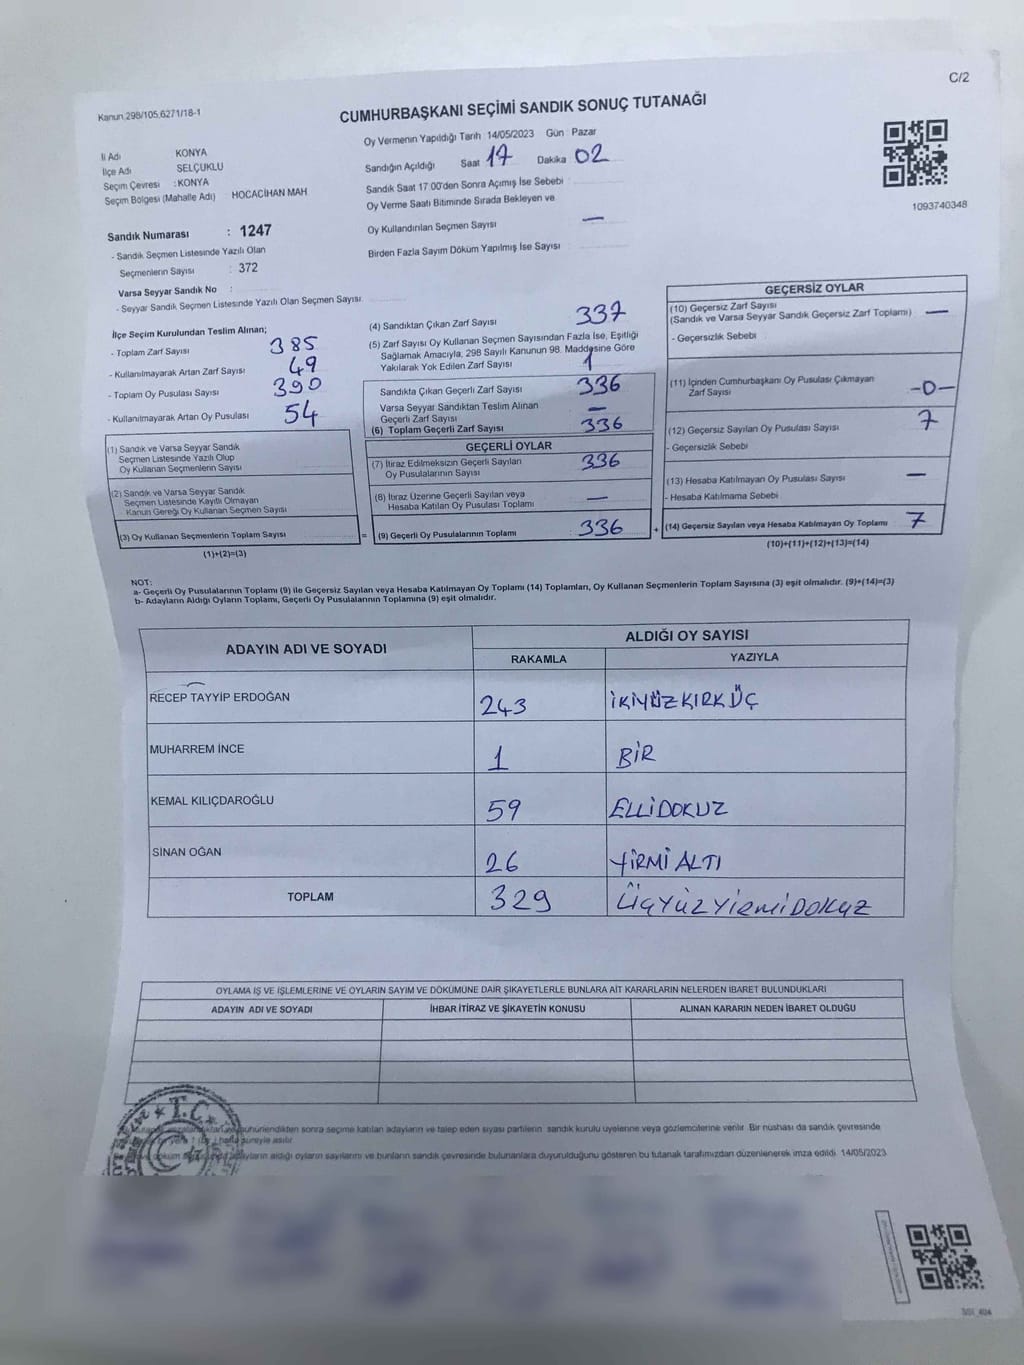 C/2
Kanun 298/105,6271/18-1
CUMHURBAŞKANI SEÇİMİ SANDIK SONUÇ TUTANAĞI
1093740348
İl Adı KONYA
İlçe Adı SELÇUKLU
Seçim Çevresi :KONYA
Seçim Bölgesi (Mahalle Adı) HOCACİHAN MAH
Sandık Numarası : 1247
- Sandık Seçmen Listesinde Yazılı Olan
Seçmenlerin Sayısı : 372
Varsa Seyyar Sandık No :
- Seyyar Sandık Seçmen Listesinde Yazılı Olan Seçmen Sayısı
Oy Vermenin Yapıldığı Tarih 14/05/2023 Gün : Pazar
Sandığın Açıldığı Saat 17 Dakika 02
Sandık Saat 17:00'den Sonra Açımış İse Sebebi :
Oy Verme Saati Bitiminde Sırada Bekleyen ve
Oy Kullandırılan Seçmen Sayısı —
Birden Fazla Sayım Döküm Yapılmış İse Sayısı :
İlçe Seçim Kurulundan Teslim Alınan;
- Toplam Zarf Sayısı 385
- Kullanılmayarak Artan Zarf Sayısı 49
- Toplam Oy Pusulası Sayısı 390
- Kullanılmayarak Artan Oy Pusulası 54
(1) Sandık ve Varsa Seyyar Sandık
Seçmen Listesinde Yazılı Olup
Oy Kullanan Seçmenlerin Sayısı
(2) Sandık ve Varsa Seyyar Sandık
Seçmen Listesinde Kayıtlı Olmayan
Kanun Gereği Oy Kullanan Seçmen Sayısı
(3) Oy Kullanan Seçmenlerin Toplam Sayısı
(1)+(2)=(3)
(4) Sandıktan Çıkan Zarf Sayısı 337
(5) Zarf Sayısı Oy Kullanan Seçmen Sayısından Fazla İse, Eşitliği
Sağlamak Amacıyla, 298 Sayılı Kanunun 98. Maddesine Göre
Yakılarak Yok Edilen Zarf Sayısı 1
Sandıkta Çıkan Geçerli Zarf Sayısı 336
Varsa Seyyar Sandıktan Teslim Alınan
Geçerli Zarf Sayısı —
(6) Toplam Geçerli Zarf Sayısı 336
GEÇERLİ OYLAR
(7) İtiraz Edilmeksizin Geçerli Sayılan
Oy Pusulalarının Sayısı 336
(8) İtiraz Üzerine Geçerli Sayılan veya
Hesaba Katılan Oy Pusulası Toplamı —
= (9) Geçerli Oy Pusulalarının Toplamı : 336
GEÇERSİZ OYLAR
(10) Geçersiz Zarf Sayısı
(Sandık ve Varsa Seyyar Sandık Geçersiz Zarf Toplamı) —
- Geçersizlik Sebebi
(11) İçinden Cumhurbaşkanı Oy Pusulası Çıkmayan
Zarf Sayısı -0-
(12) Geçersiz Sayılan Oy Pusulası Sayısı 7
- Geçersizlik Sebebi
(13) Hesaba Katılmayan Oy Pusulası Sayısı —
- Hesaba Katılmama Sebebi
+ (14) Geçersiz Sayılan veya Hesaba Katılmayan Oy Toplamı 7
(10)+(11)+(12)+(13)=(14)
NOT:
a- Geçerli Oy Pusulalarının Toplamı (9) ile Geçersiz Sayılan veya Hesaba Katılmayan Oy Toplamı (14) Toplamları, Oy Kullanan Seçmenlerin Toplam Sayısına (3) eşit olmalıdır. (9)+(14)=(3)
b- Adayların Aldığı Oyların Toplamı, Geçerli Oy Pusulalarının Toplamına (9) eşit olmalıdır.
ADAYIN ADI VE SOYADI ALDIĞI OY SAYISI
RAKAMLA YAZIYLA
RECEP TAYYİP ERDOĞAN 243 İKİYÜZKIRKÜÇ
MUHARREM İNCE 1 BİR
KEMAL KILIÇDAROĞLU 59 ELLİDOKUZ
SİNAN OĞAN 26 YİRMİ ALTI
TOPLAM 329 ÜÇYÜZYİRMİDOKUZ
OYLAMA İŞ VE İŞLEMLERİNE VE OYLARIN SAYIM VE DÖKÜMÜNE DAİR ŞİKAYETLERLE BUNLARA AİT KARARLARIN NELERDEN İBARET BULUNDUKLARI
ADAYIN ADI VE SOYADI İHBAR İTİRAZ VE ŞİKAYETİN KONUSU ALINAN KARARIN NEDEN İBARET OLDUĞU
T.C.
mühürlendikten sonra seçime katılan adayların ve talep eden siyasi partilerin sandık kurulu üyelerine veya gözlemcilerine verilir. Bir nüshası da sandık çevresinde
hafta süreyle asılır.
döküm adayların aldığı oyların sayılarını ve bunların sandık çevresinde bulunanlara duyurulduğunu gösteren bu tutanak tarafımızdan düzenlenerek imza edildi. 14/05/2023